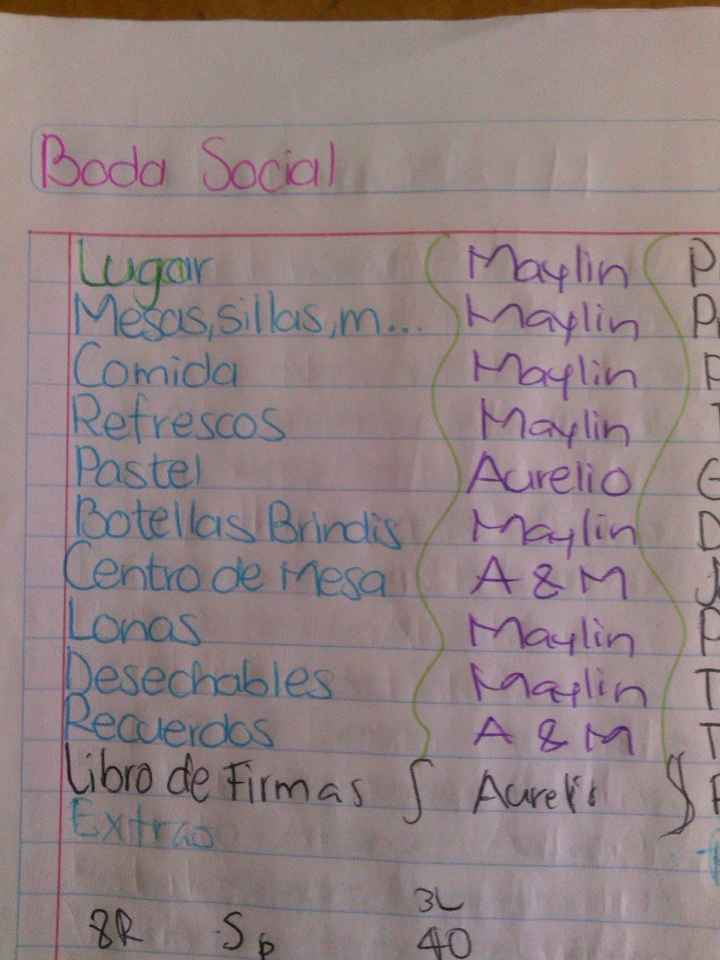 Boda Social
Lugar Maylin P
Mesas, sillas, m... Maylin P
Comida Maylin P
Refrescos Maylin T
Pastel Aurelio G
Botellas Brindis Maylin D
Centro de Mesa A & M J
Lonas Maylin P
Desechables Maylin T
Recuerdos A & M T
Libro de Firmas Aurelio P
Extras
3L
8R 5p 40